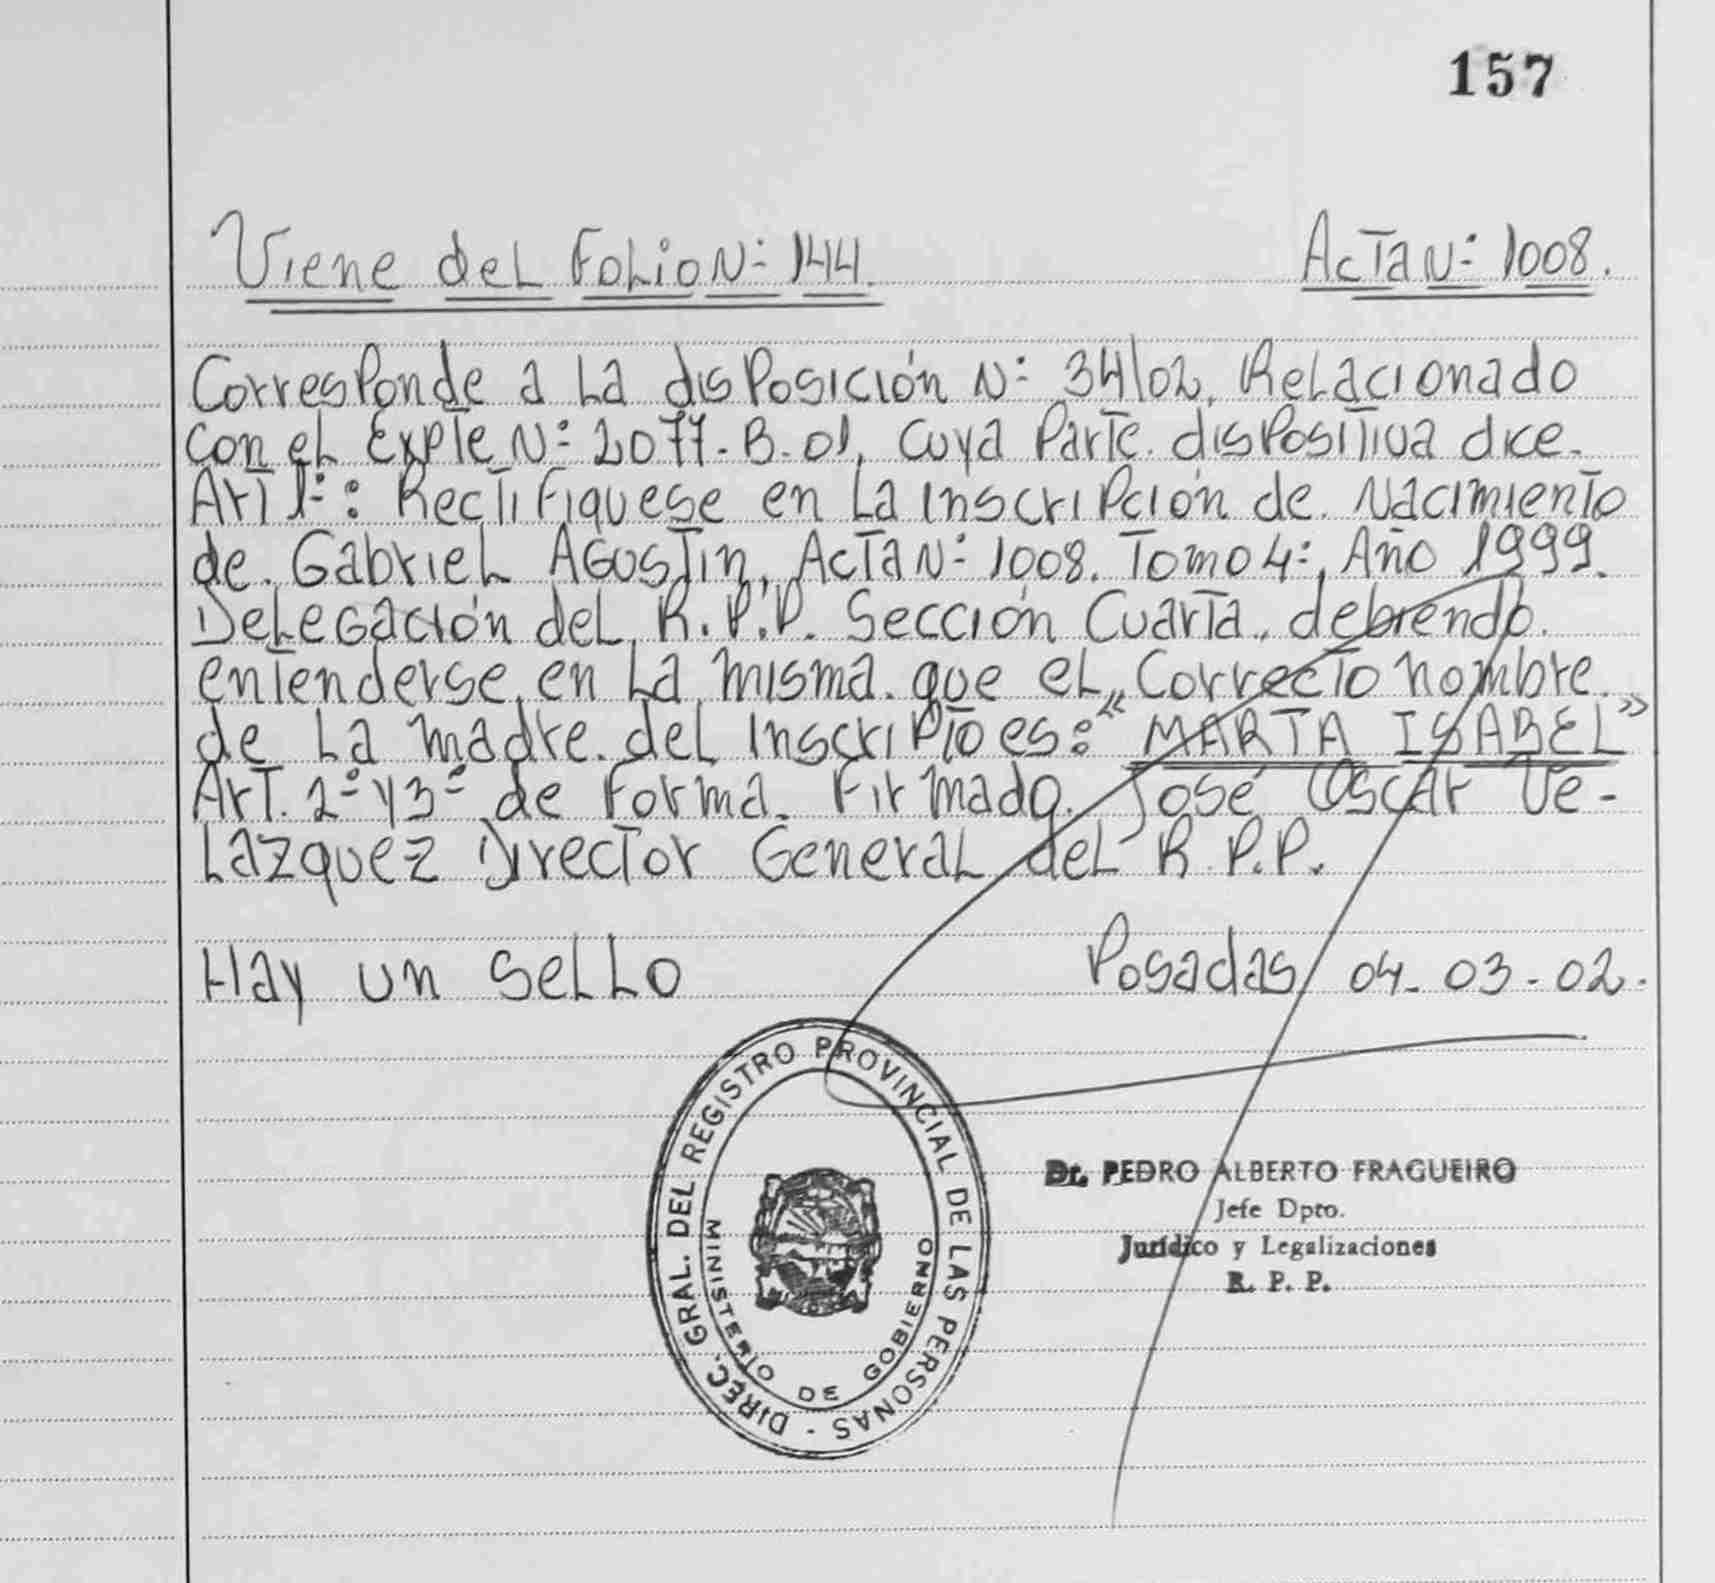 157
Viene del Folio Nº 144. Acta Nº 1008.
Corresponde a La disposición Nº 34/02, Relacionado
con el Expte Nº 2077-B-01, cuya Parte dispositiva dice-
Art 1º: Rectifiquese en La inscripción de Nacimiento
de Gabriel Agustin, Acta Nº 1008. Tomo 4º, Año 1999.
Delegación del R.P.P. Sección Cuarta, debiendo
entenderse en La misma que el correcto nombre
de La madre del inscripto es: "MARTA ISABEL"
Art. 2º y 3º de forma. Firmado. José Oscar Ve-
Lazquez Director General del R.P.P.
Hay un sello Posadas 04-03-02.
DIREC. GRAL. DEL REGISTRO PROVINCIAL DE LAS PERSONAS -
MINISTERIO DE GOBIERNO
Dr. PEDRO ALBERTO FRAGUEIRO
Jefe Dpto.
Jurídico y Legalizaciones
R. P. P.